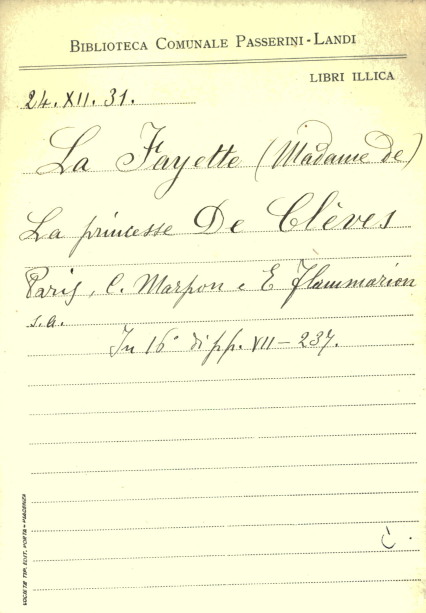 BIBLIOTECA COMUNALE PASSERINI-LANDI
LIBRI ILLICA
24.XII.31.
La Fayette (Madame de)
La princesse De Clèves
Paris, C. Marpon e E. Flammarion
s.a.
In 16° di pp. VII - 237.
C.